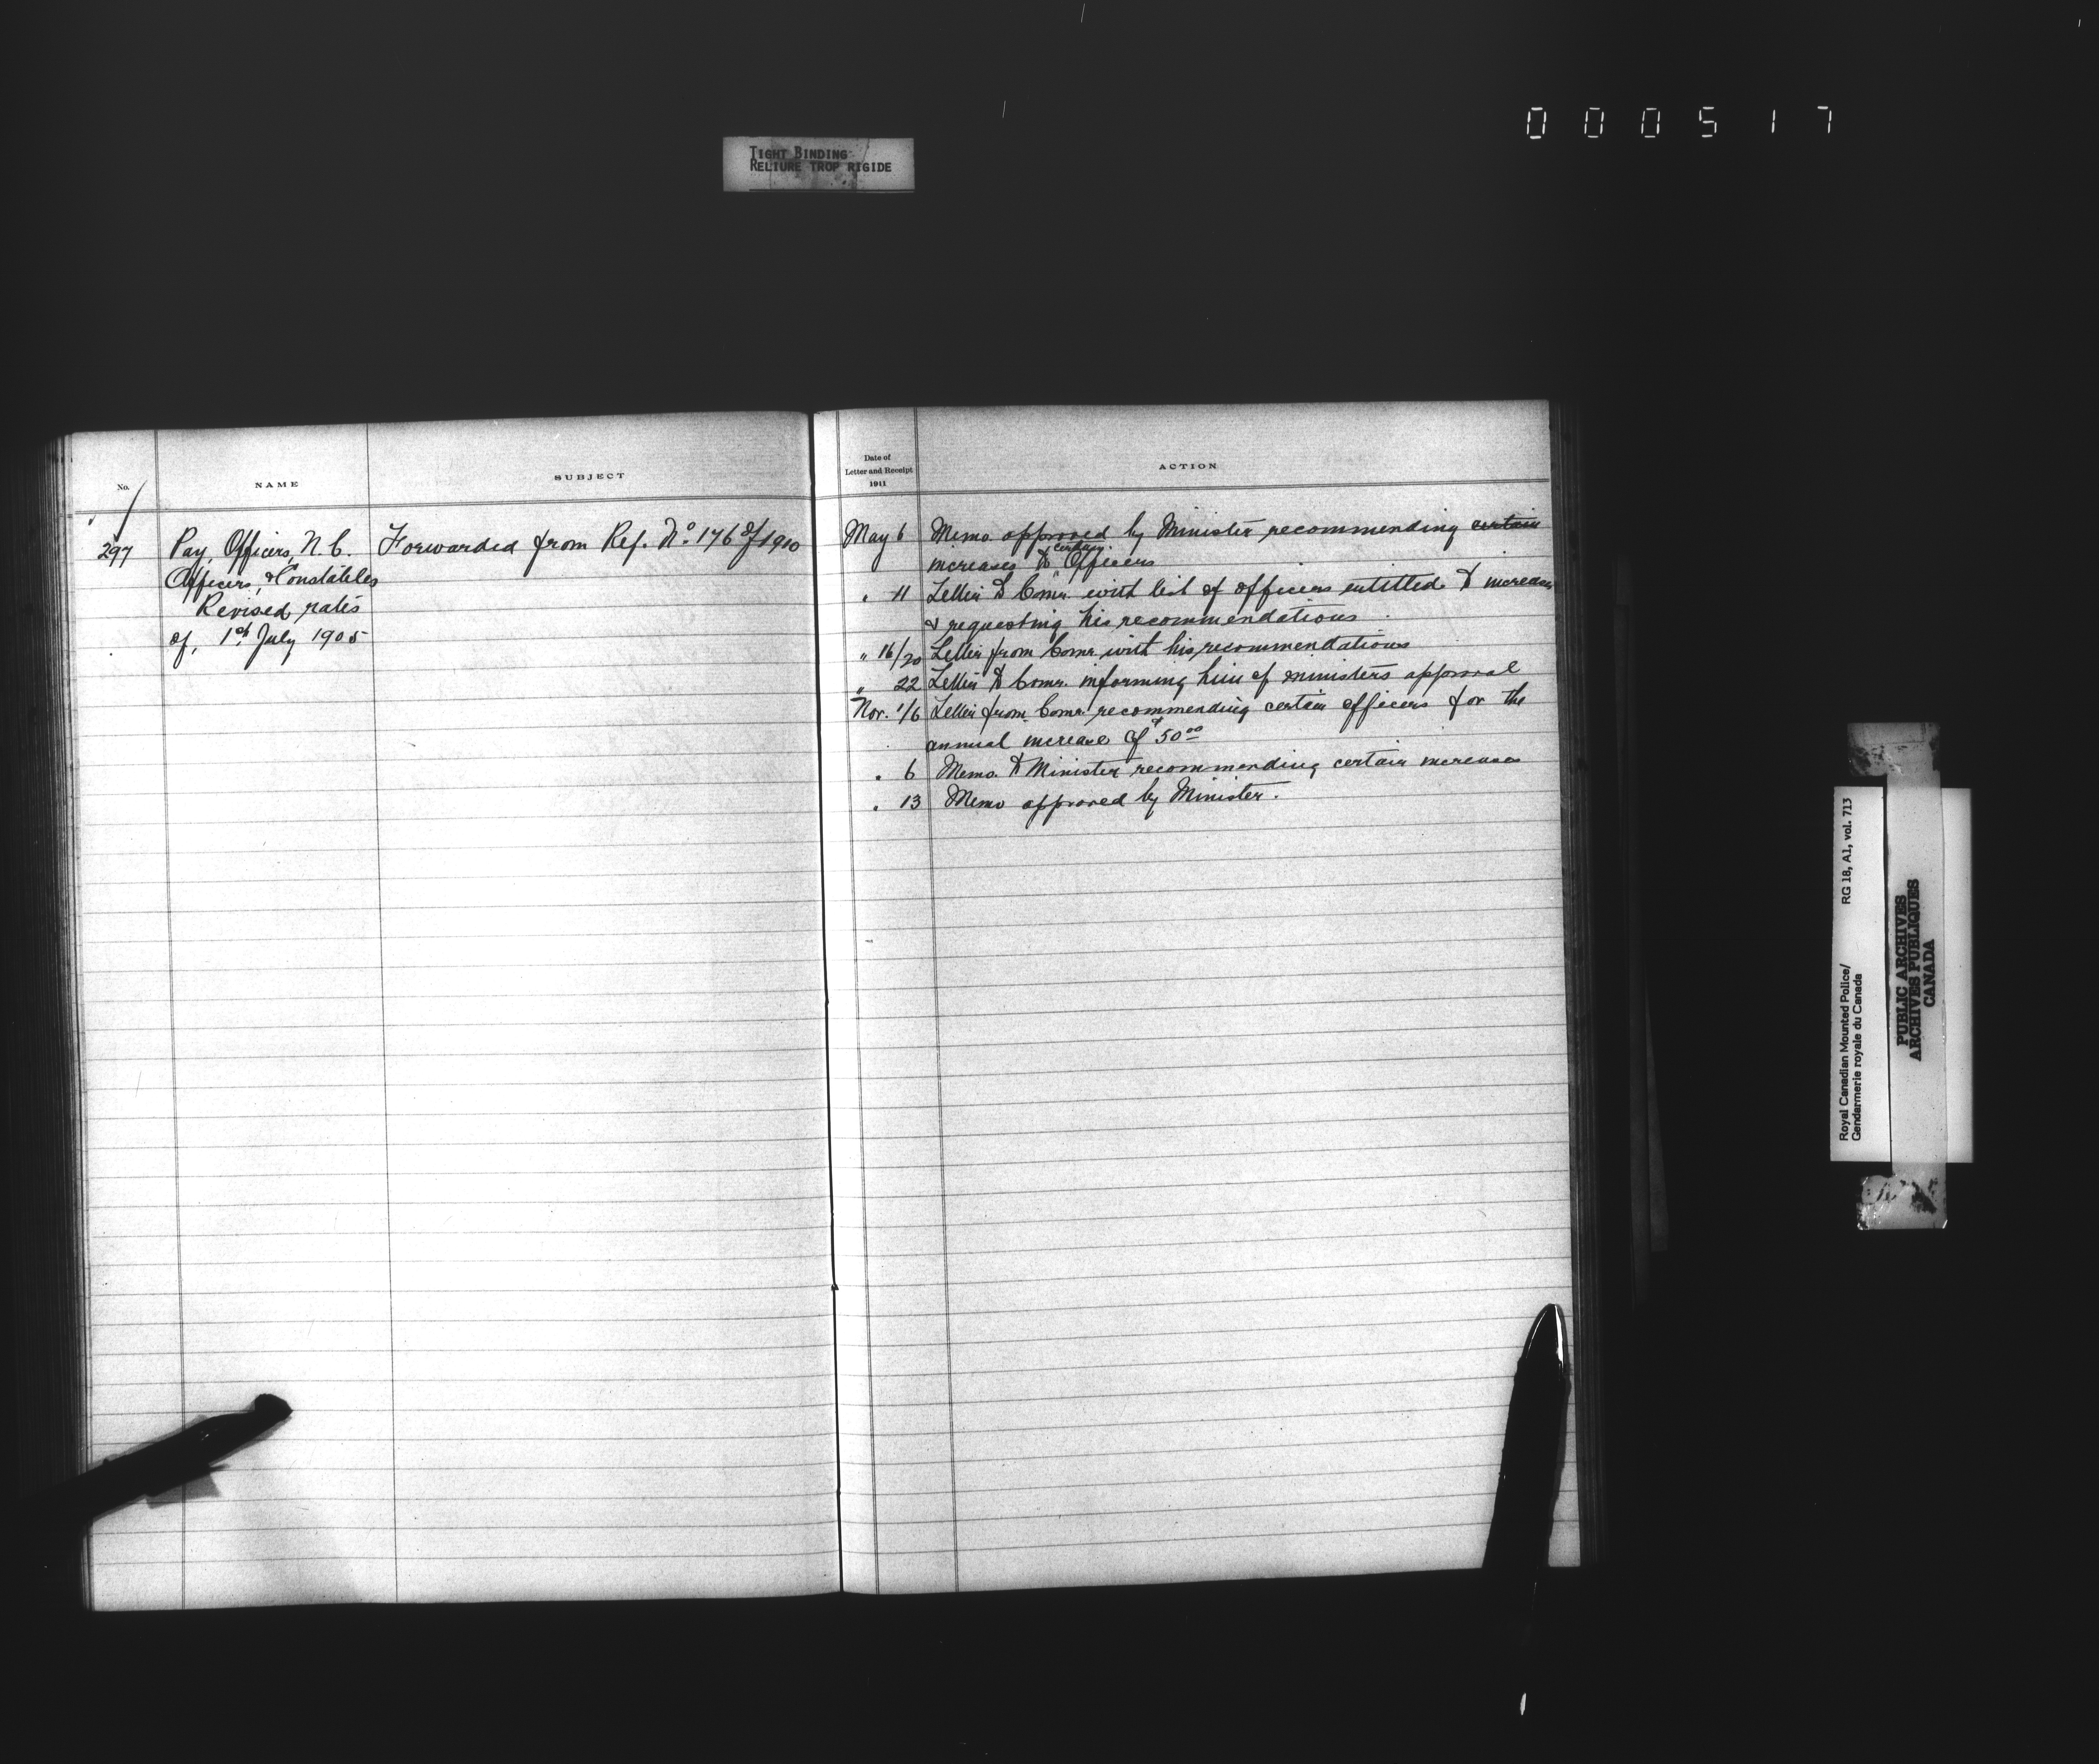 000517
TIGHT BINDING
RELIURE TROP RIGIDE
No.
NAME
SUBJECT
297
Pay, Officers, N.C.
Officers, & Constables
Revised, rates
of, 1st July 1905
Forwarded from Ref. No. 176 of 1910
Date of
Letter and Receipt
1911
ACTION
May 6 Memo approved by Minister recommending certain
increases to certain Officers
" 11 Letter to Comr. with list of officers entitled to increase
& requesting his recommendations
" 16/20 Letter from Comr. with his recommendations
" 22 Letter to Comr. informing him of ministers approval
Nov. 1/6 Letter from Comr. recommending certain officers for the
annual increase of $50.00
" 6 Memo. to Minister recommending certain increases
" 13 Memo approved by Minister.
Royal Canadian Mounted Police/
Gendarmerie royale du Canada
RG 18, A1, vol. 713
PUBLIC ARCHIVES
ARCHIVES PUBLIQUES
CANADA